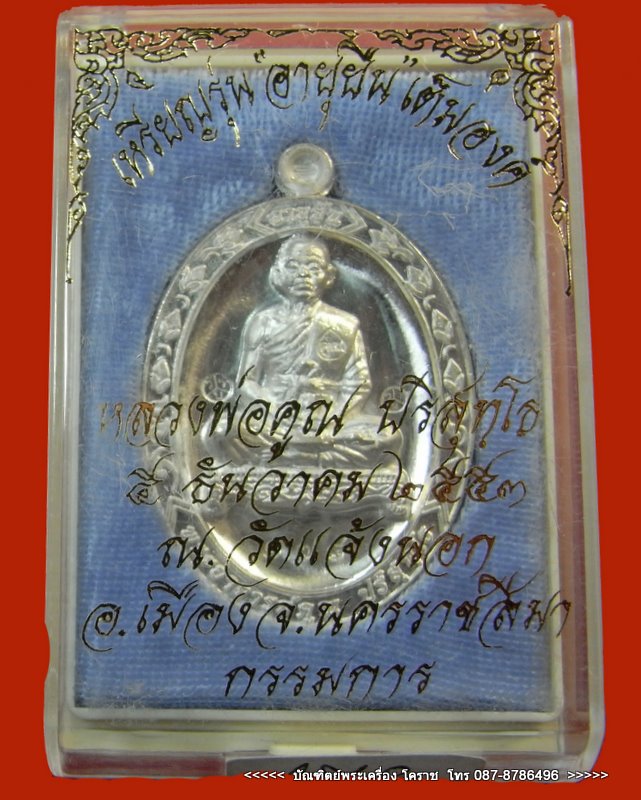 เหรียญรุ่น "อายุยืน" เต็มองค์
หลวงพ่อคูณ ปริสุทฺโธ
๕ ธันวาคม ๒๕๕๓
ณ. วัดแจ้งนอก
อ.เมือง จ.นครราชสีมา
กรรมการ
<<<<< บัณฑิตย์พระเครื่อง โคราช โทร 087-8786496 >>>>>